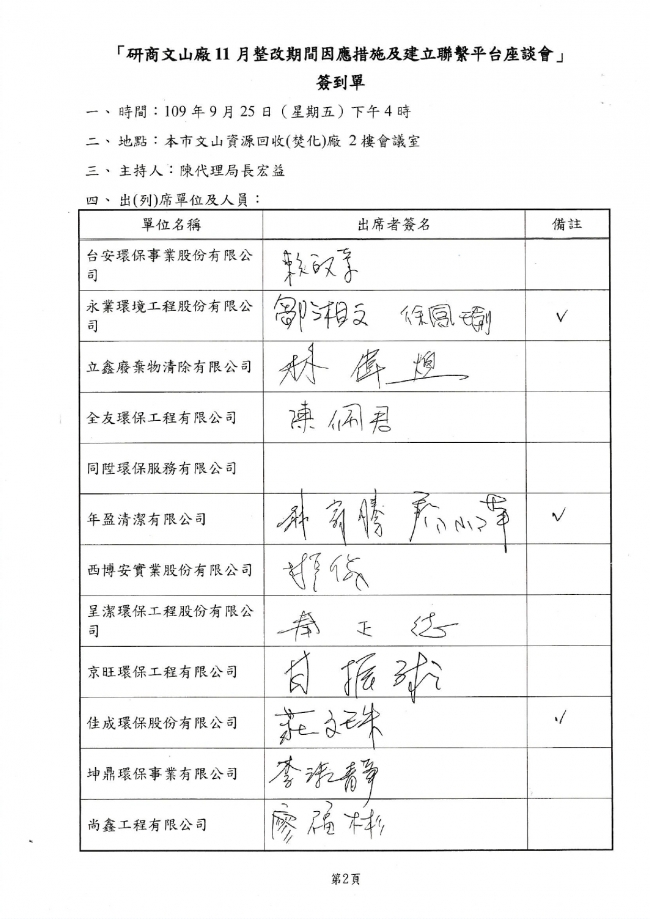 「研商文山廠11月整改期間因應措施及建立聯繫平台座談會」
簽到單
一、時間：109年9月25日（星期五）下午4時
二、地點：本市文山資源回收(焚化)廠 2樓會議室
三、主持人：陳代理局長宏益
四、出(列)席單位及人員：
單位名稱 出席者簽名 備註
台安環保事業股份有限公
司
永業環境工程股份有限公 鄒湘文 ✓
司
立鑫廢棄物清除有限公司 林偉
全友環保工程有限公司 陳佩君
同陞環保服務有限公司
年盈清潔有限公司 ✓
西博安實業股份有限公司
呈潔環保工程股份有限公
司
京旺環保工程有限公司 甘振球
佳成環保股份有限公司 莊文珠 ✓
坤鼎環保事業有限公司 李淑靜
尚鑫工程有限公司 廖福彬
第2頁